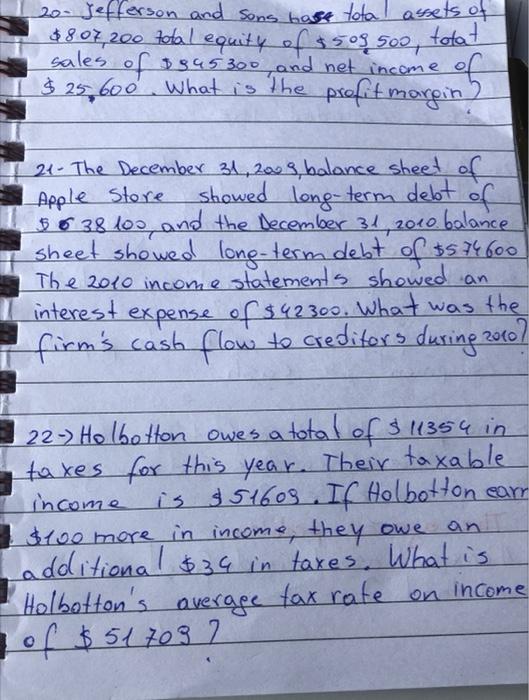 20- Jefferson and Sons have total assets of
$807,200 total equity of $509,500, total
sales of $945300, and net income of
$25,600. What is the profit margin?
21- The December 31, 2009, balance sheet of
Apple Store showed long-term debt of
$638100, and the December 31, 2010 balance
sheet showed long-term debt of $574600
The 2010 income statements showed an
interest expense of $42300. What was the
firm's cash flow to creditors during 2010?
22-> Holbotton owes a total of $11354 in
taxes for this year. Their taxable
income is $51609. If Holbotton earr
$100 more in income, they owe an
additional $34 in taxes. What is
Holbotton's average tax rate on income
of $51709?